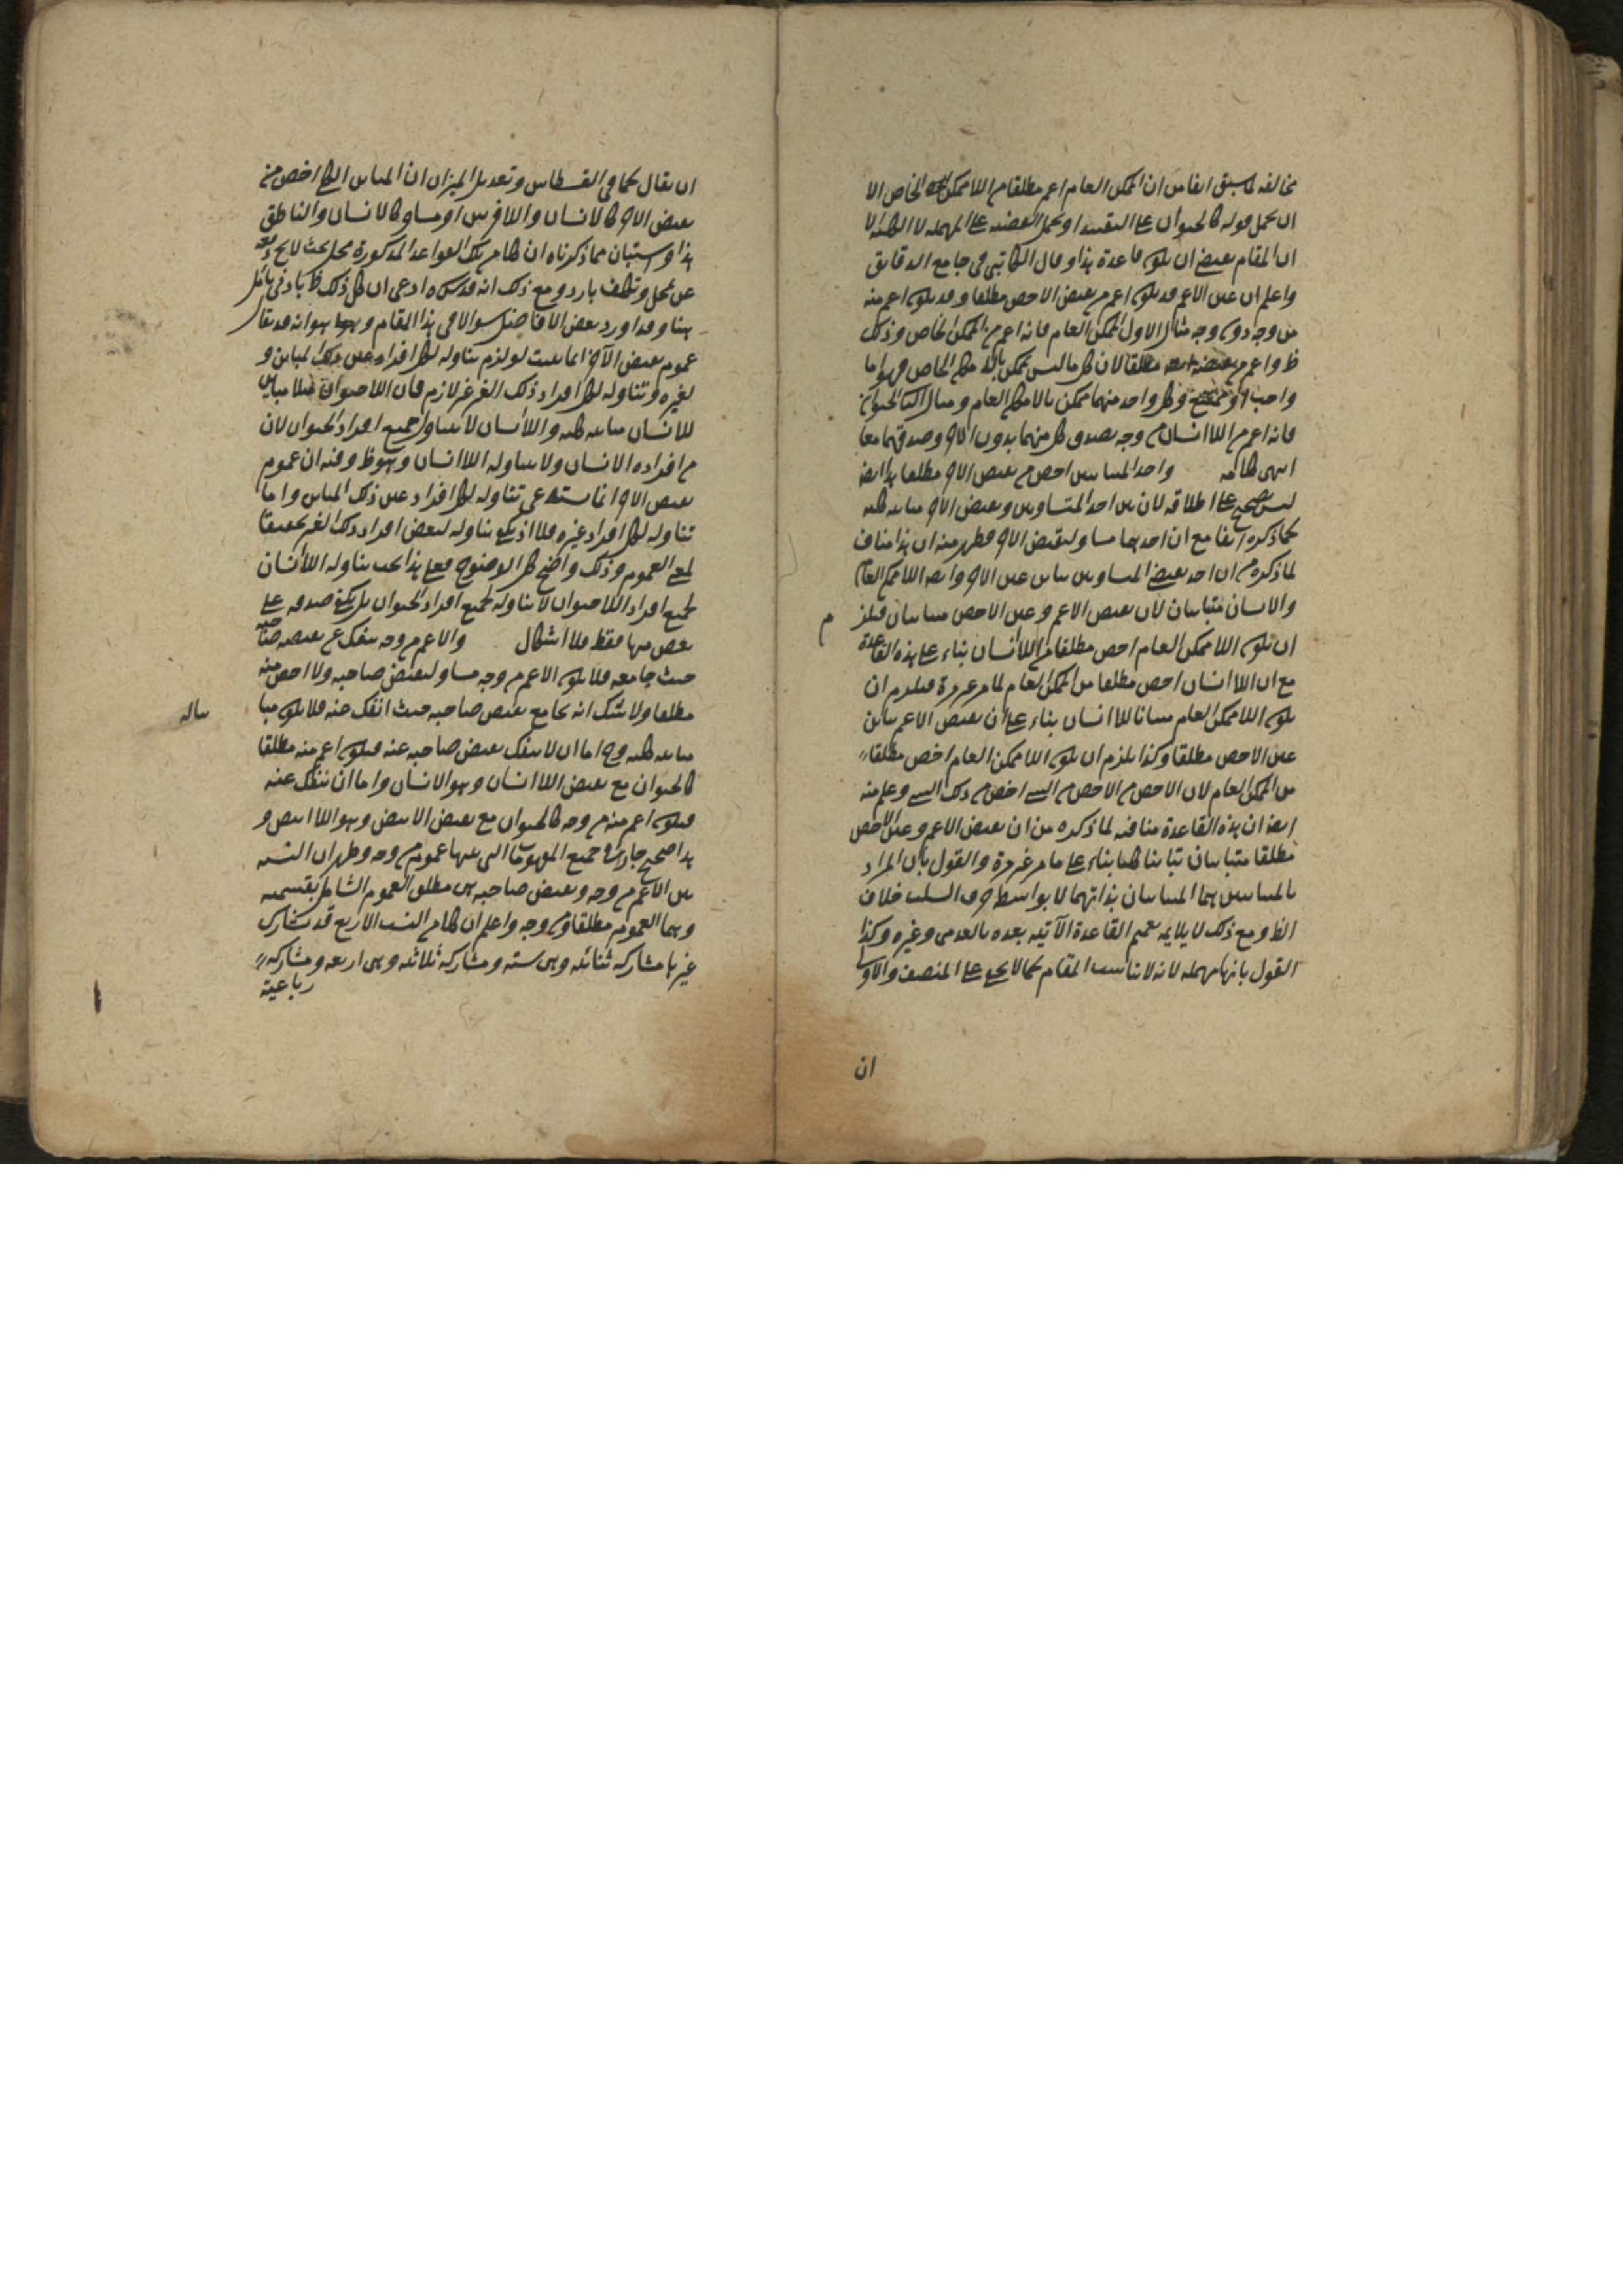 مخالفه لما سبق انفا من ان الممكن العام اعم مطلقا من اللاممكن الخاص الا
ان يحمل قوله كالحيوان على التقييد او يحمل القضيه على المهمله لا الكليه لا
ان المقام يقتضي ان يكون قاعدة هذا وقال الكاتبي في جامع الدقايق
واعلم ان عين الاعم قد يكون اعم من نقيض الاخص مطلقا وقد يكون اعم منه
من وجه دون وجه مثال الاول الممكن العام فانه اعم من الممكن الخاص وذلك
ظ واعم من نقيضه مطلقا لان كل ما ليس بممكن بالامكان الخاص فهو اما
واجب او ممتنع وكل واحد منهما ممكن بالامكان العام ومثال الثاني الحيوان
فانه اعم من اللاانسان من وجه بصدق كل منهما بدون الاخر وصدقهما معا
انتهى كلامه واحد المتباينين اخص من نقيض الاخر مطلقا هذا ايضا
ليس بصحيح على اطلاقه لان بين احد المتساويين ونقيض الاخر مباينه كليه
كما ذكره انفا مع ان احدهما مساو لنقيض الاخر فظهر منه ان هذا مناف
لما ذكره من ان احد نقيضي المتساويين يباين عين الاخر وايضا اللاممكن العام
والانسان متباينان لان نقيض الاعم وعين الاخص متباينان فيلز م
ان يكون اللاممكن العام اخص مطلقا من اللاانسان بناء على هذه القاعدة
مع ان اللاانسان اخص مطلقا من الممكن العام لما مر غير مرة فيلزم ان
يكون اللاممكن العام مباينا للاانسان بناء على ان نقيض الاعم يباين
عين الاخص مطلقا وكذا يلزم ان يكون اللاممكن العام اخص مطلقا
من الممكن العام لان الاخص من الاخص من الشي اخص من ذلك الشي وعلم منه
ايضا ان هذه القاعدة منافيه لما ذكره من ان نقيض الاعم وعين الاخص
مطلقا متباينان تباينا كليا بناء على ما مر غير مرة والقول بان المراد
بالمتباينين هما المتباينان بذاتهما لا بواسطة حرف السلب خلاف
الظ ومع ذلك لا يلايمه تعميم القاعدة الآتيه بعده بالعدمي وغيره وكذا
القول بانها مهمله لانه لا يناسب المقام كما لا يخفى على المنصف والاولى
ان
ان يقال كما في القسطاس وتعديل الميزان ان المباين الكلي اخص من
نقيض الاخر كالانسان واللافرس او مساو كالانسان والناطق
هذا واستبان مما ذكرناه ان كلا من تلك القواعد المذكورة محل بحث لا يخ دفعه
عن تمحل وتكلف بارد ومع ذلك انه قدس سره ادعى ان كل ذلك ظ بادنى تامل
هنا وقد اورد بعض الافاضل سوالا في هذا المقام وهو انه قد يقال
عموم نقيض الآخر انما يثبت لو لزم تناوله لكل افراد عين ذلك المباين و
لغيره وتناوله لكل افراد ذلك الغير غير لازم فان اللاحيوان مثلا مباين
للانسان مباينه كليه واللاانسان لا يتناول جميع افراد الحيوان لان
من افراده الانسان ولا يتناوله اللاانسان وهو ظ وفيه ان عموم
نقيض الاخر انما يستدعي تناوله لكل افراد عين ذلك المباين واما
تناوله لكل افراد غيره فلا اذ يكفي تناوله لبعض افراد ذلك الغير تحقيقا
لمعنى العموم وذلك واضح كل الوضوح فعلى هذا يجب تناوله اللاانسان
لجميع افراد اللاحيوان لا تناوله لجميع افراد الحيوان بل يكفي صدقه على
بعض منها فقط فلا اشكال والاعم من وجه ينفك عن نقيض صاحبه
حيث جامعه فلا يكون الاعم من وجه مساو لنقيض صاحبه ولا اخص منه
مطلقا ولا شك انه يجامع نقيض صاحبه حيث انفك عنه فلا يكون مبا
مباينه كليه وح اما ان لا ينفك نقيض صاحبه عنه فيكون اعم منه مطلقا
كالحيوان مع نقيض اللاانسان وهو الانسان واما ان ينفك عنه
فيكون اعم منه من وجه كالحيوان مع نقيض الابيض وهو اللاابيض و
هذا صحيح جار في جميع المفهومات التي بينها عموم من وجه وظهر ان النسبه
بين الاعم من وجه ونقيض صاحبه هي مطلق العموم الشامل بقسميه
وهما العموم مطلقا ومن وجه واعلم ان كلا من النسب الاربع قد تشارك
غيرها مشاركه ثنائيه وهي سته ومشاركه ثلاثيه وهي اربعه ومشاركه
رباعية